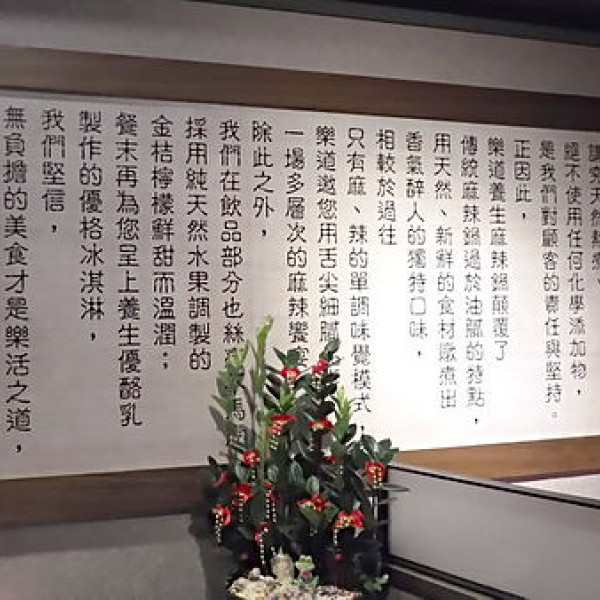 講究天然熬煮、
絕不使用任何化學添加物，
是我們對顧客的責任與堅持。
正因此，
樂道養生麻辣鍋顛覆了
傳統麻辣鍋過於油膩的特點，
用天然、新鮮的食材熬煮出
香氣醉人的獨特口味，
相較於過往
只有麻、辣的單調味覺模式
樂道邀您用舌尖細膩
一場多層次的麻辣饗宴
除此之外，
我們在飲品部分也絲
採用純天然水果調製的
金桔檸檬鮮甜而溫潤；
餐末再為您呈上養生優酪乳
製作的優格冰淇淋，
我們堅信，
無負擔的美食才是樂活之道，